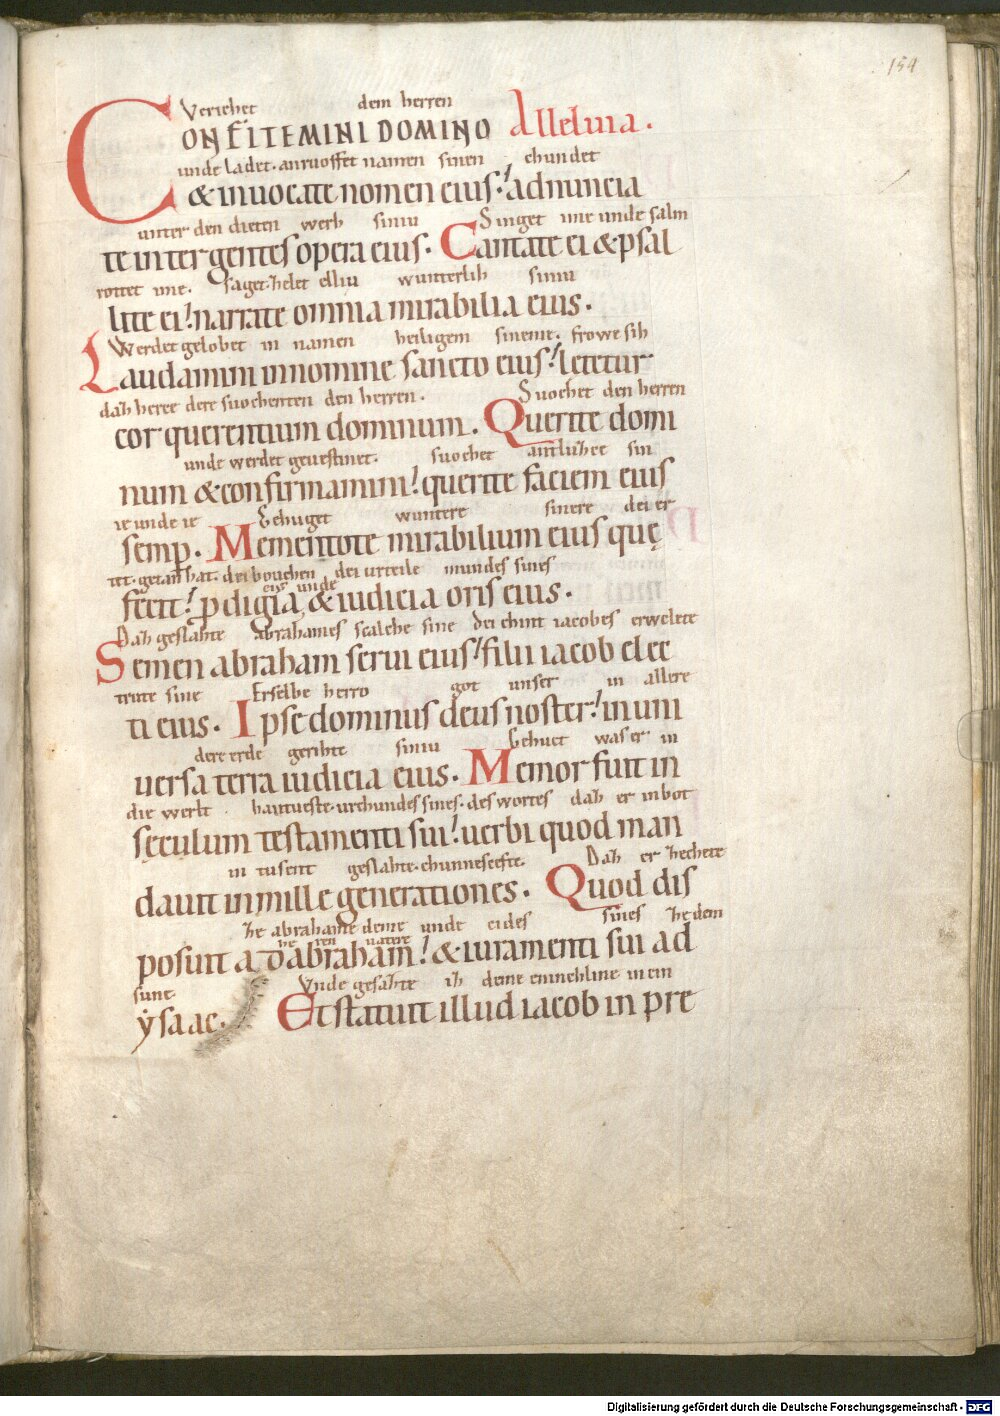 154
Veriehet dem herren
CONFITEMINI DOMINO Alleluia.
unde ladet. anruoffet namen sinen chundet
& inuocate nomen eius. adnuncia
unter den dieten werh siniu Singet ime unde salm
te inter gentes opera eius. Cantate ei & psal
rottet ime. saget. helet elliu wunterlih siniu
lite ei! narrate omnia mirabilia eius.
Werdet gelobet in namen heiligem sineme. frowe sih
Laudamini in nomine sancto eius! letetur
dah herce dere suochenten den herren. Suochet den herren
cor querentium dominum. Querite domi
unde werdet geuestinet. suochet antluhce sin
num & confirmamini! querite faciem eius
ie unde ie Gehuget wuntere sinere dei er
semp. Mementote mirabilium eius quę
tet. getan hat. dei bouchen dei urteile mundes sines
eius unde
fecit! pdigia, & iudicia oris eius.
Dah geslahte abrahames scalche sine dei chint iacobes erwelete
Semen abraham serui eius! filii iacob elec
trute sine Erselbe herro got unser in allere
ti eius. Ipse dominus deus noster! in uni
dere erde gerihte siniu Gehuct was er in
uersa terra iudicia eius. Memor fuit in
die werlt hantueste. urchundes sines. des wortes dah er inbot
sęculum testamenti sui! uerbi quod man
in tusent geslahte. chunnescefte. Dah er hechete
dauit in mille generationes. Quod dis
he abrahame deme unde eides sines he dem
posuit ad abraham! & iuramenti sui ad
sune. Unde gesahte ih deme einnehline in ein
ẏsaac. Et statuit illud iacob in pre
Digitalisierung gefördert durch die Deutsche Forschungsgemeinschaft - DFG